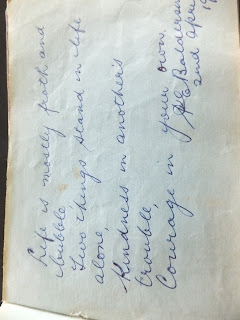 Life is mostly froth and
bubble,
Two things stand in life
alone,
Kindness in another's
trouble,
Courage in your own.
2nd April